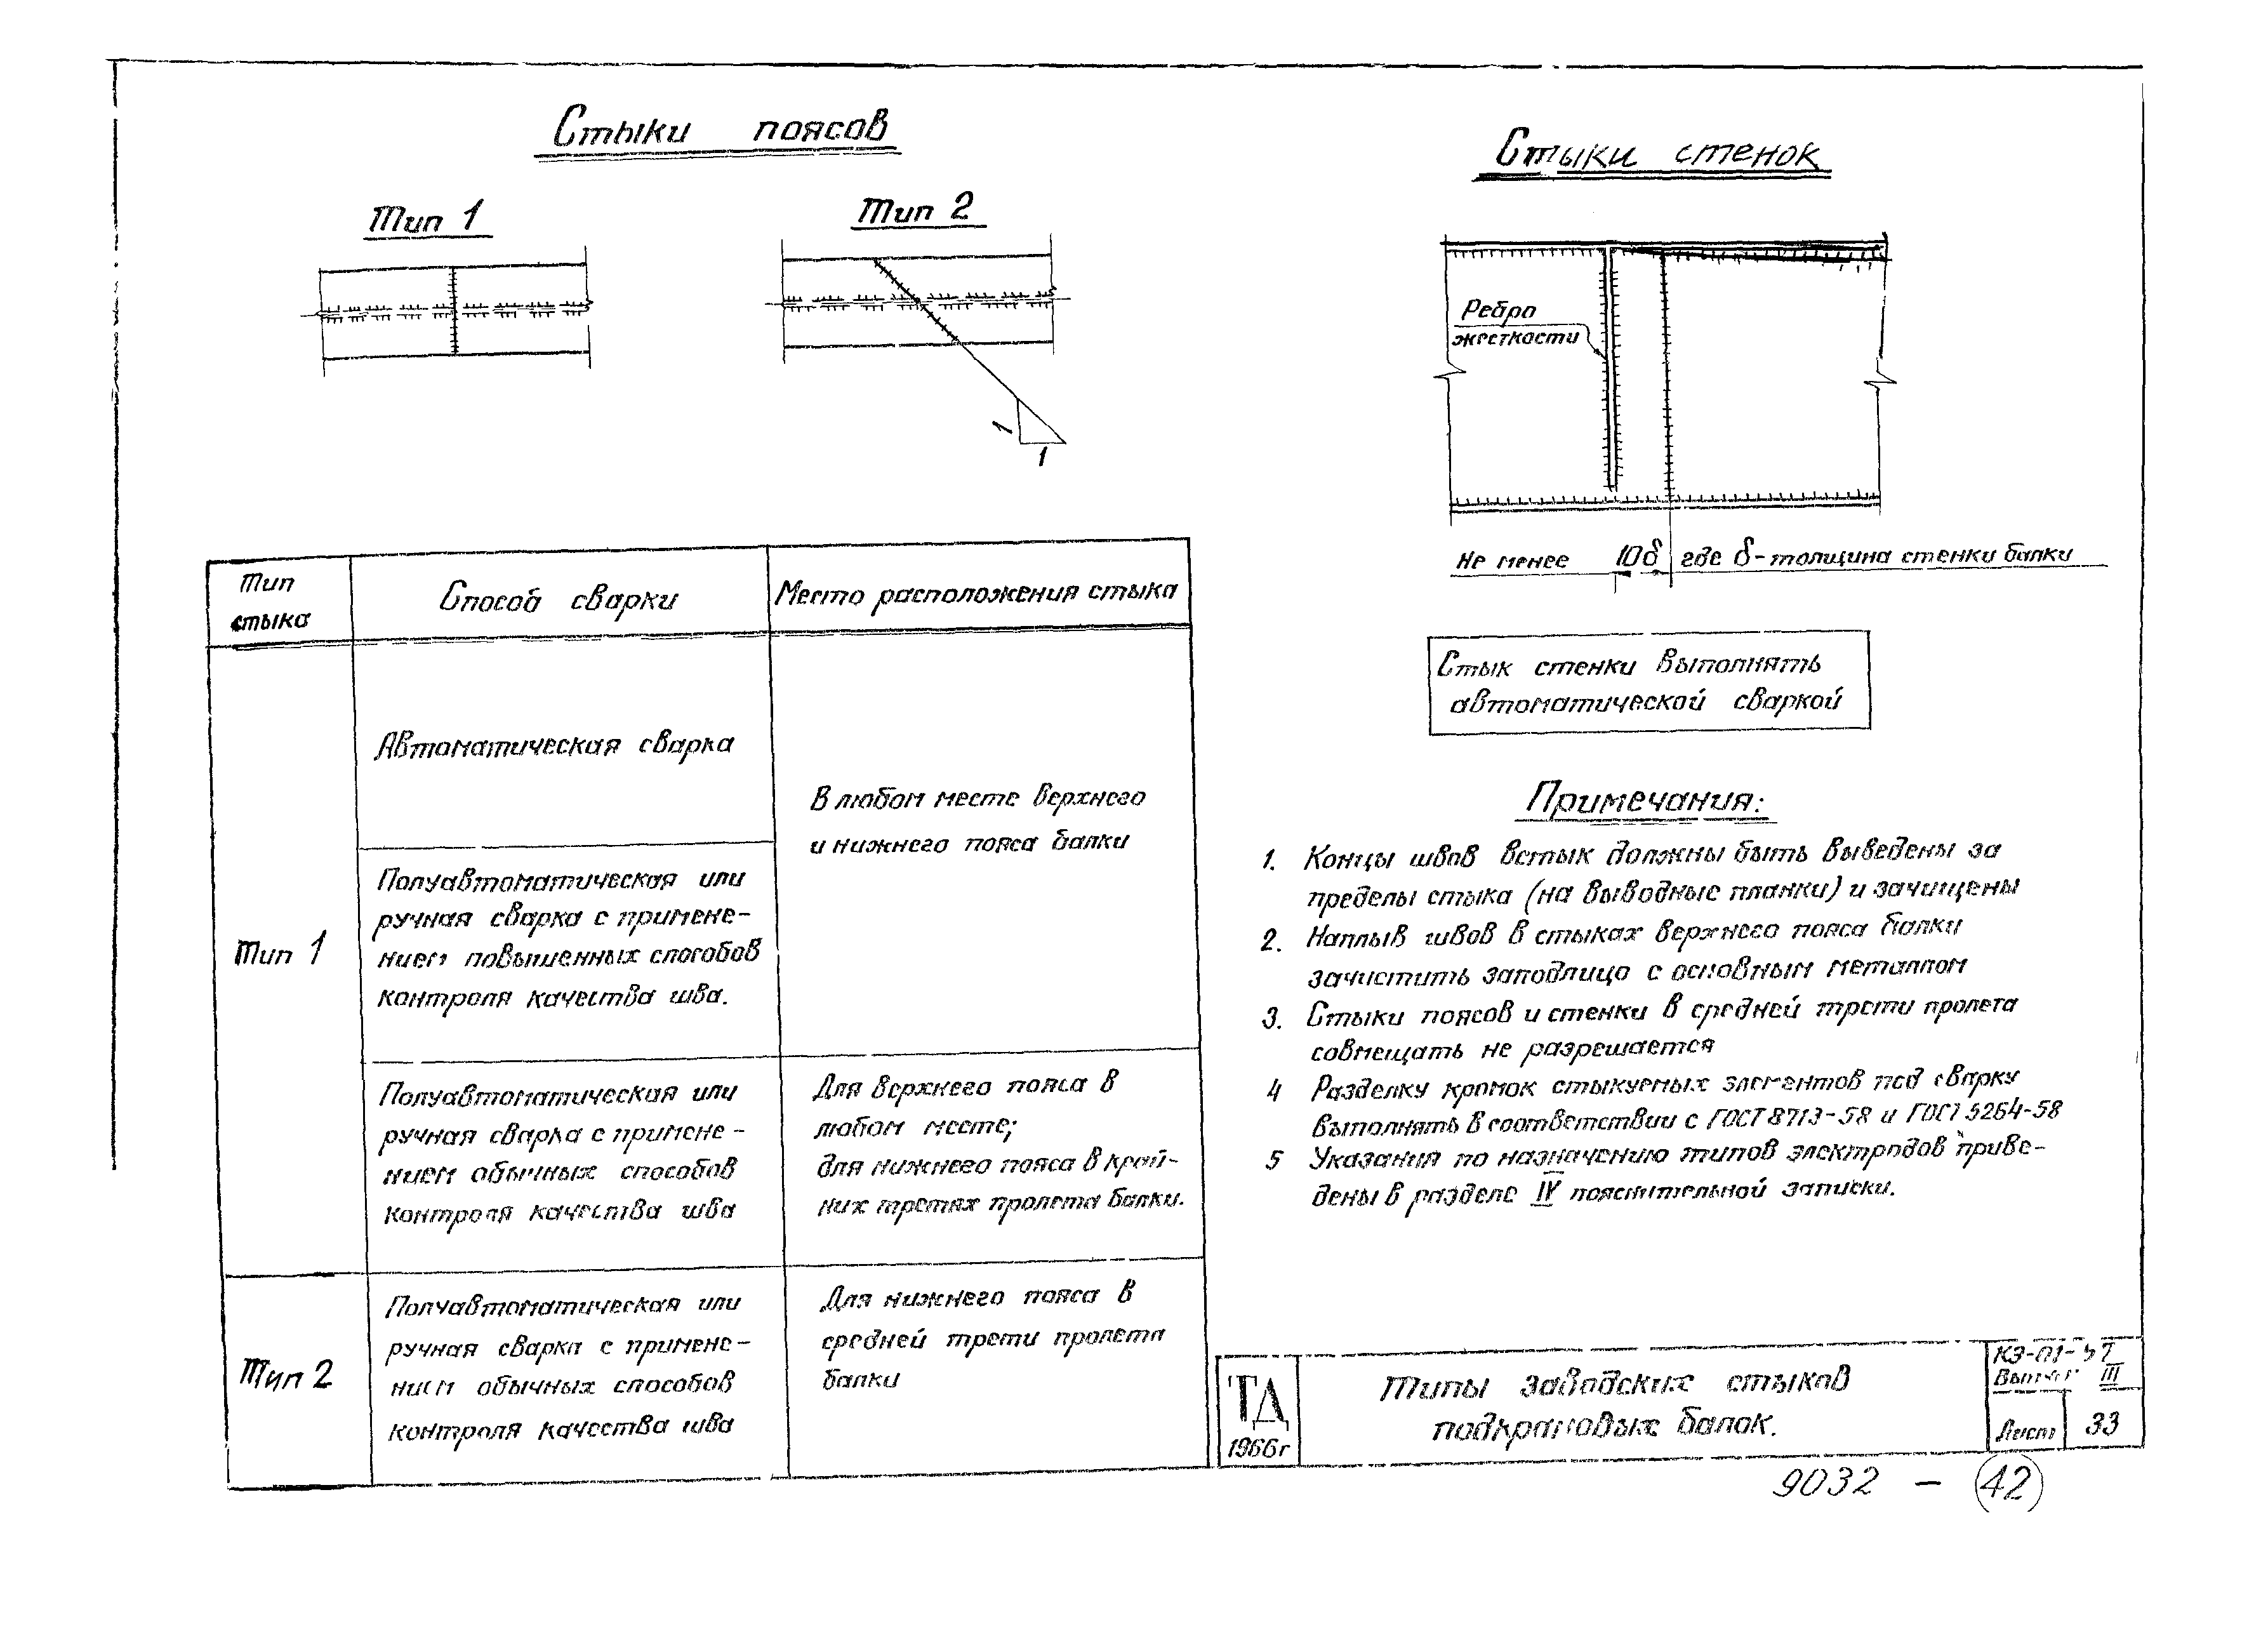 Стыки поясов
Тип 1
Тип 2
1
1
Стыки стенок
Ребро
жесткости
Не менее 10δ где δ-толщина стенки балки
Стык стенки выполнять
автоматической сваркой
Тип
стыка
Способ сварки
Место расположения стыка
Тип 1
Автоматическая сварка
В любом месте верхнего
и нижнего пояса балки
Полуавтоматическая или
ручная сварка с примене-
нием повышенных способов
контроля качества шва.
Полуавтоматическая или
ручная сварка с примене-
нием обычных способов
контроля качества шва
Для верхнего пояса в
любом месте;
для нижнего пояса в край-
них третях пролета балки.
Тип 2
Полуавтоматическая или
ручная сварка с примене-
нием обычных способов
контроля качества шва
Для нижнего пояса в
средней трети пролета
балки
Примечания:
1. Концы швов встык должны быть выведены за
пределы стыка (на выводные планки) и зачищены
2. Наплыв швов в стыках верхнего пояса балки
зачистить заподлицо с основным металлом
3. Стыки поясов и стенки в средней трети пролета
совмещать не разрешается
4 Разделку кромок стыкуемых элементов под сварку
выполнять в соответствии с ГОСТ 8713-58 и ГОСТ 5264-58
5 Указания по назначению типов электродов приве-
дены в разделе IV пояснительной записки.
ТД
1966г
Типы заводских стыков
подкрановых балок.
КЭ-01-57
Выпуск III
Лист 33
9032 - 42